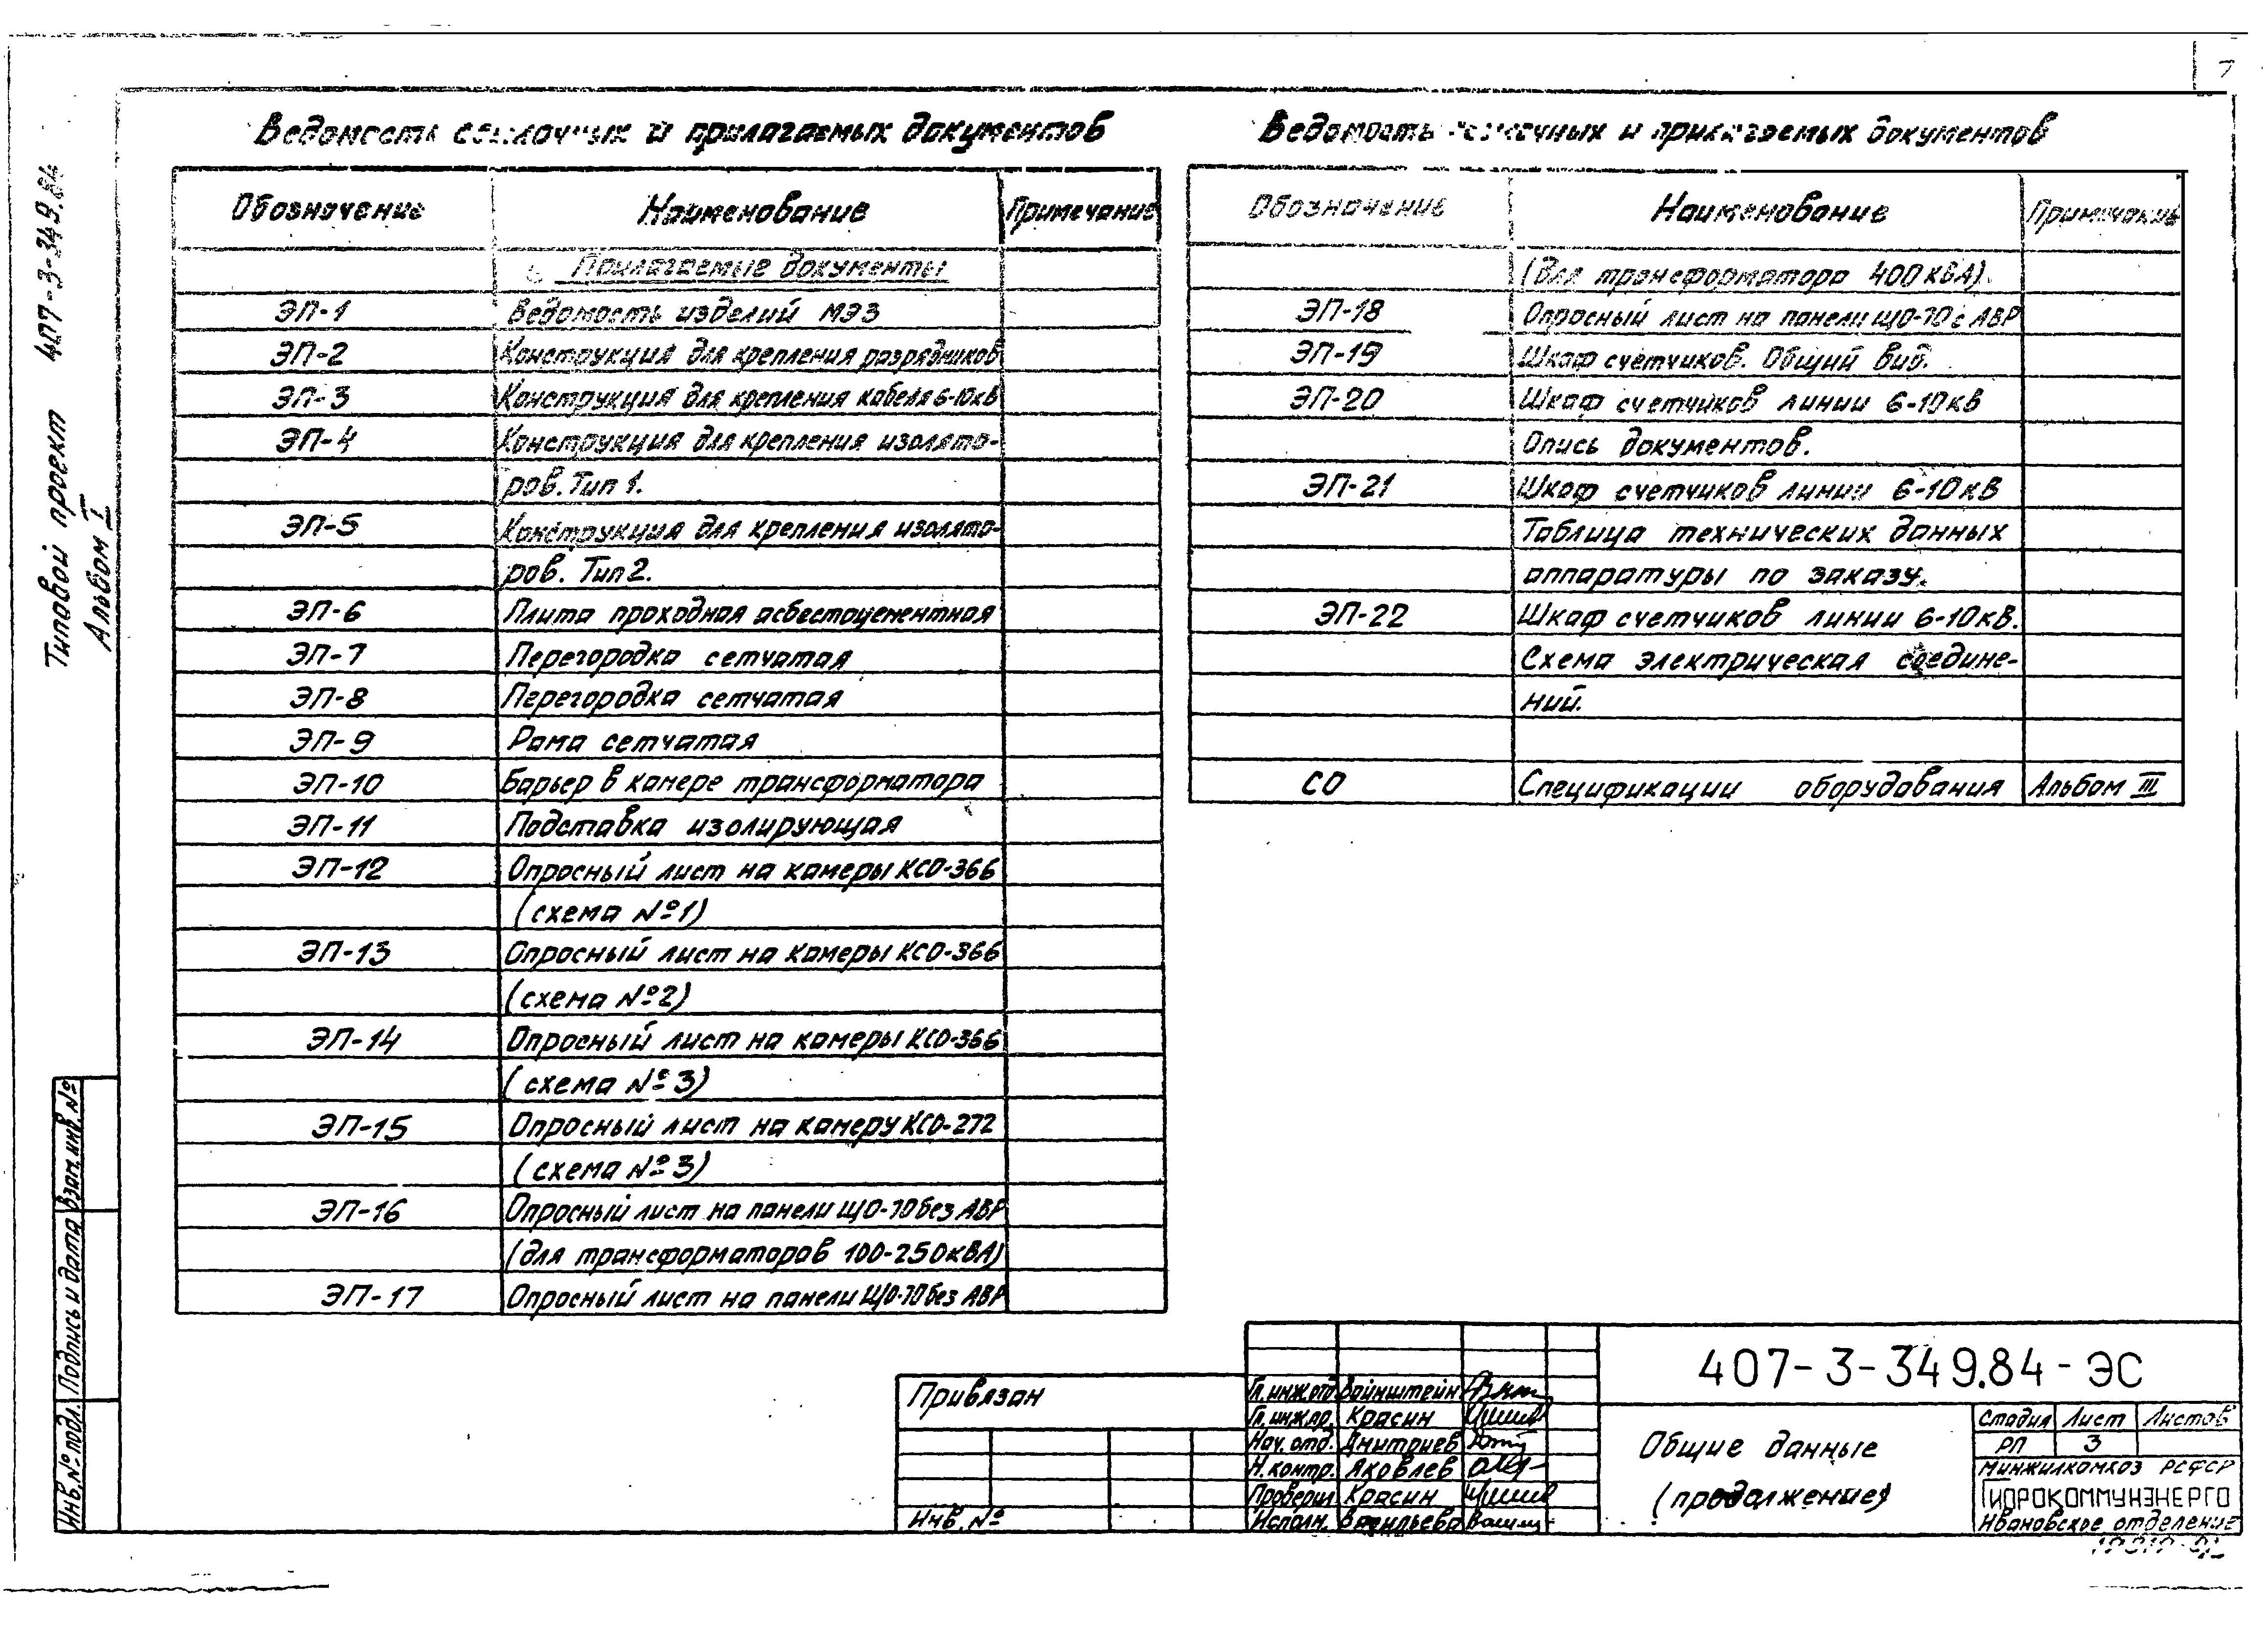 7
Типовой проект 407-3-349.84
Альбом I
Ведомость ссылочных и прилагаемых документов
Обозначение Наименование Примечание
Прилагаемые документы
ЭП-1 Ведомость изделий МЭЗ
ЭП-2 Конструкция для крепления разрядников
ЭП-3 Конструкция для крепления кабеля 6-10кВ
ЭП-4 Конструкция для крепления изолято-
ров. Тип 1.
ЭП-5 Конструкция для крепления изолято-
ров. Тип 2.
ЭП-6 Плита проходная асбестоцементная
ЭП-7 Перегородка сетчатая
ЭП-8 Перегородка сетчатая
ЭП-9 Рама сетчатая
ЭП-10 Барьер в камере трансформатора
ЭП-11 Подставка изолирующая
ЭП-12 Опросный лист на камеры КСО-366
(схема №1)
ЭП-13 Опросный лист на камеры КСО-366
(схема №2)
ЭП-14 Опросный лист на камеры КСО-366
(схема №3)
ЭП-15 Опросный лист на камеру КСО-272
(схема №3)
ЭП-16 Опросный лист на панели ЩО-70 без АВР
(для трансформаторов 100-250кВА)
ЭП-17 Опросный лист на панели ЩО-70 без АВР
Ведомость ссылочных и прилагаемых документов
Обозначение Наименование Примечание
(для трансформатора 400кВА).
ЭП-18 Опросный лист на панели ЩО-70 с АВР
ЭП-19 Шкаф счетчиков. Общий вид.
ЭП-20 Шкаф счетчиков линии 6-10кВ
Опись документов.
ЭП-21 Шкаф счетчиков линии 6-10кВ
Таблица технических данных
аппаратуры по заказу.
ЭП-22 Шкаф счетчиков линии 6-10кВ.
Схема электрическая соедине-
ний.
СО Спецификации оборудования Альбом III
Взам.инв.№
Подпись и дата
Инв.№ подл.
Привязан
Инв.№
Гл.инж.отд. Вайнштейн
Гл.инж.пр. Красин
Нач.отд. Дмитриев
Н.контр. Яковлев
Проверил Красин
Исполн. Васильева
407-3-349.84-ЭС
Общие данные
(продолжение)
Стадия Лист Листов
РП 3
Минжилкомхоз РСФСР
Гипрокоммунэнерго
Ивановское отделение